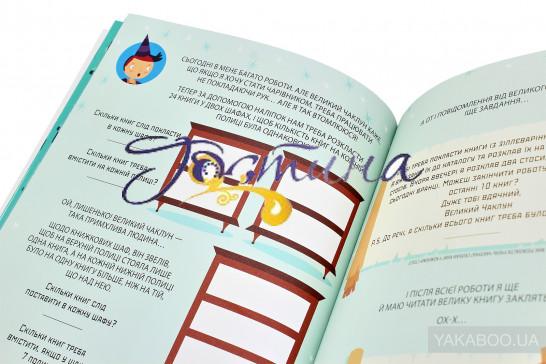 СЬОГОДНІ В МЕНЕ БАГАТО РОБОТИ, АЛЕ ВЕЛИКИЙ ЧАКЛУН КАЖЕ,
ЩО ЯКЩО Я ХОЧУ СТАТИ ЧАРІВНИКОМ, ТРЕБА ПРАЦЮВАТИ,
НЕ ПОКЛАДАЮЧИ РУК... АЛЕ Я ТАК ВТОМЛЮЮСЯ!
ТЕПЕР ЗА ДОПОМОГОЮ НАЛІПОК НАМ ТРЕБА РОЗКЛАСТИ
24 КНИГИ У ДВОХ ШАФАХ, І ЩОБ КІЛЬКІСТЬ КНИГ НА КОЖНІЙ
ПОЛИЦІ БУЛА ОДНАКОВОЮ.
СКІЛЬКИ КНИГ СЛІД ПОКЛАСТИ
В КОЖНУ ШАФУ?
СКІЛЬКИ КНИГ ТРЕБА
ВМІСТИТИ НА КОЖНІЙ ПОЛИЦІ?
ОЙ, ЛИШЕНЬКО! ВЕЛИКИЙ ЧАКЛУН —
ТАКА ПРИМХЛИВА ЛЮДИНА...
ЩОДО КНИЖКОВИХ ШАФ, ВІН ЗВЕЛІВ,
ЩОБ НА ВЕРХНІЙ ПОЛИЦІ СТОЯЛА ЛИШЕ
ОДНА КНИГА, А НА КОЖНІЙ НИЖНІЙ ПОЛИЦІ
БУЛО НА ОДНУ КНИГУ БІЛЬШЕ, НІЖ НА ТІЙ,
ЩО НАД НЕЮ.
СКІЛЬКИ КНИГ СЛІД
ПОСТАВИТИ В КОЖНУ ШАФУ?
СКІЛЬКИ КНИГ ТРЕБА
ВМІСТИТИ, ЯКЩО У ШАФІ
7 ПОЛИЦЬ
Ростина
А ОТІ ПОВІДОМЛЕННЯ ВІД ВЕЛИКОГО
ЩЕ ЗАВДАННЯ...
ТРЕБА ПОКЛАСТИ КНИГИ ІЗ ЗІЛЛЕВАРІННЯ
ДО КАТАЛОГУ ТА РОЗКЛАВ ЇХ НА
СТОСІВ. ВЧОРА ВВЕЧЕРІ Я РОЗКЛАВ ДВА СТОСИ
СЬОГОДНІ ВРАНЦІ. МОЖЕШ ЗАКІНЧИТИ РОБОТУ
ОСТАННІ 10 КНИГ?
ДУЖЕ ТОБІ ВДЯЧНИЙ,
ВЕЛИКИЙ ЧАКЛУН
P.S. ДО РЕЧІ, А СКІЛЬКИ ВСЬОГО КНИГ ТРЕБА БУЛО
І ПІСЛЯ ВСІЄЇ РОБОТИ Я ЩЕ
Й МАЮ ЧИТАТИ ВЕЛИКУ КНИГУ ЗАКЛЯТЬ
ОХ-Х...
YAKABOO.UA